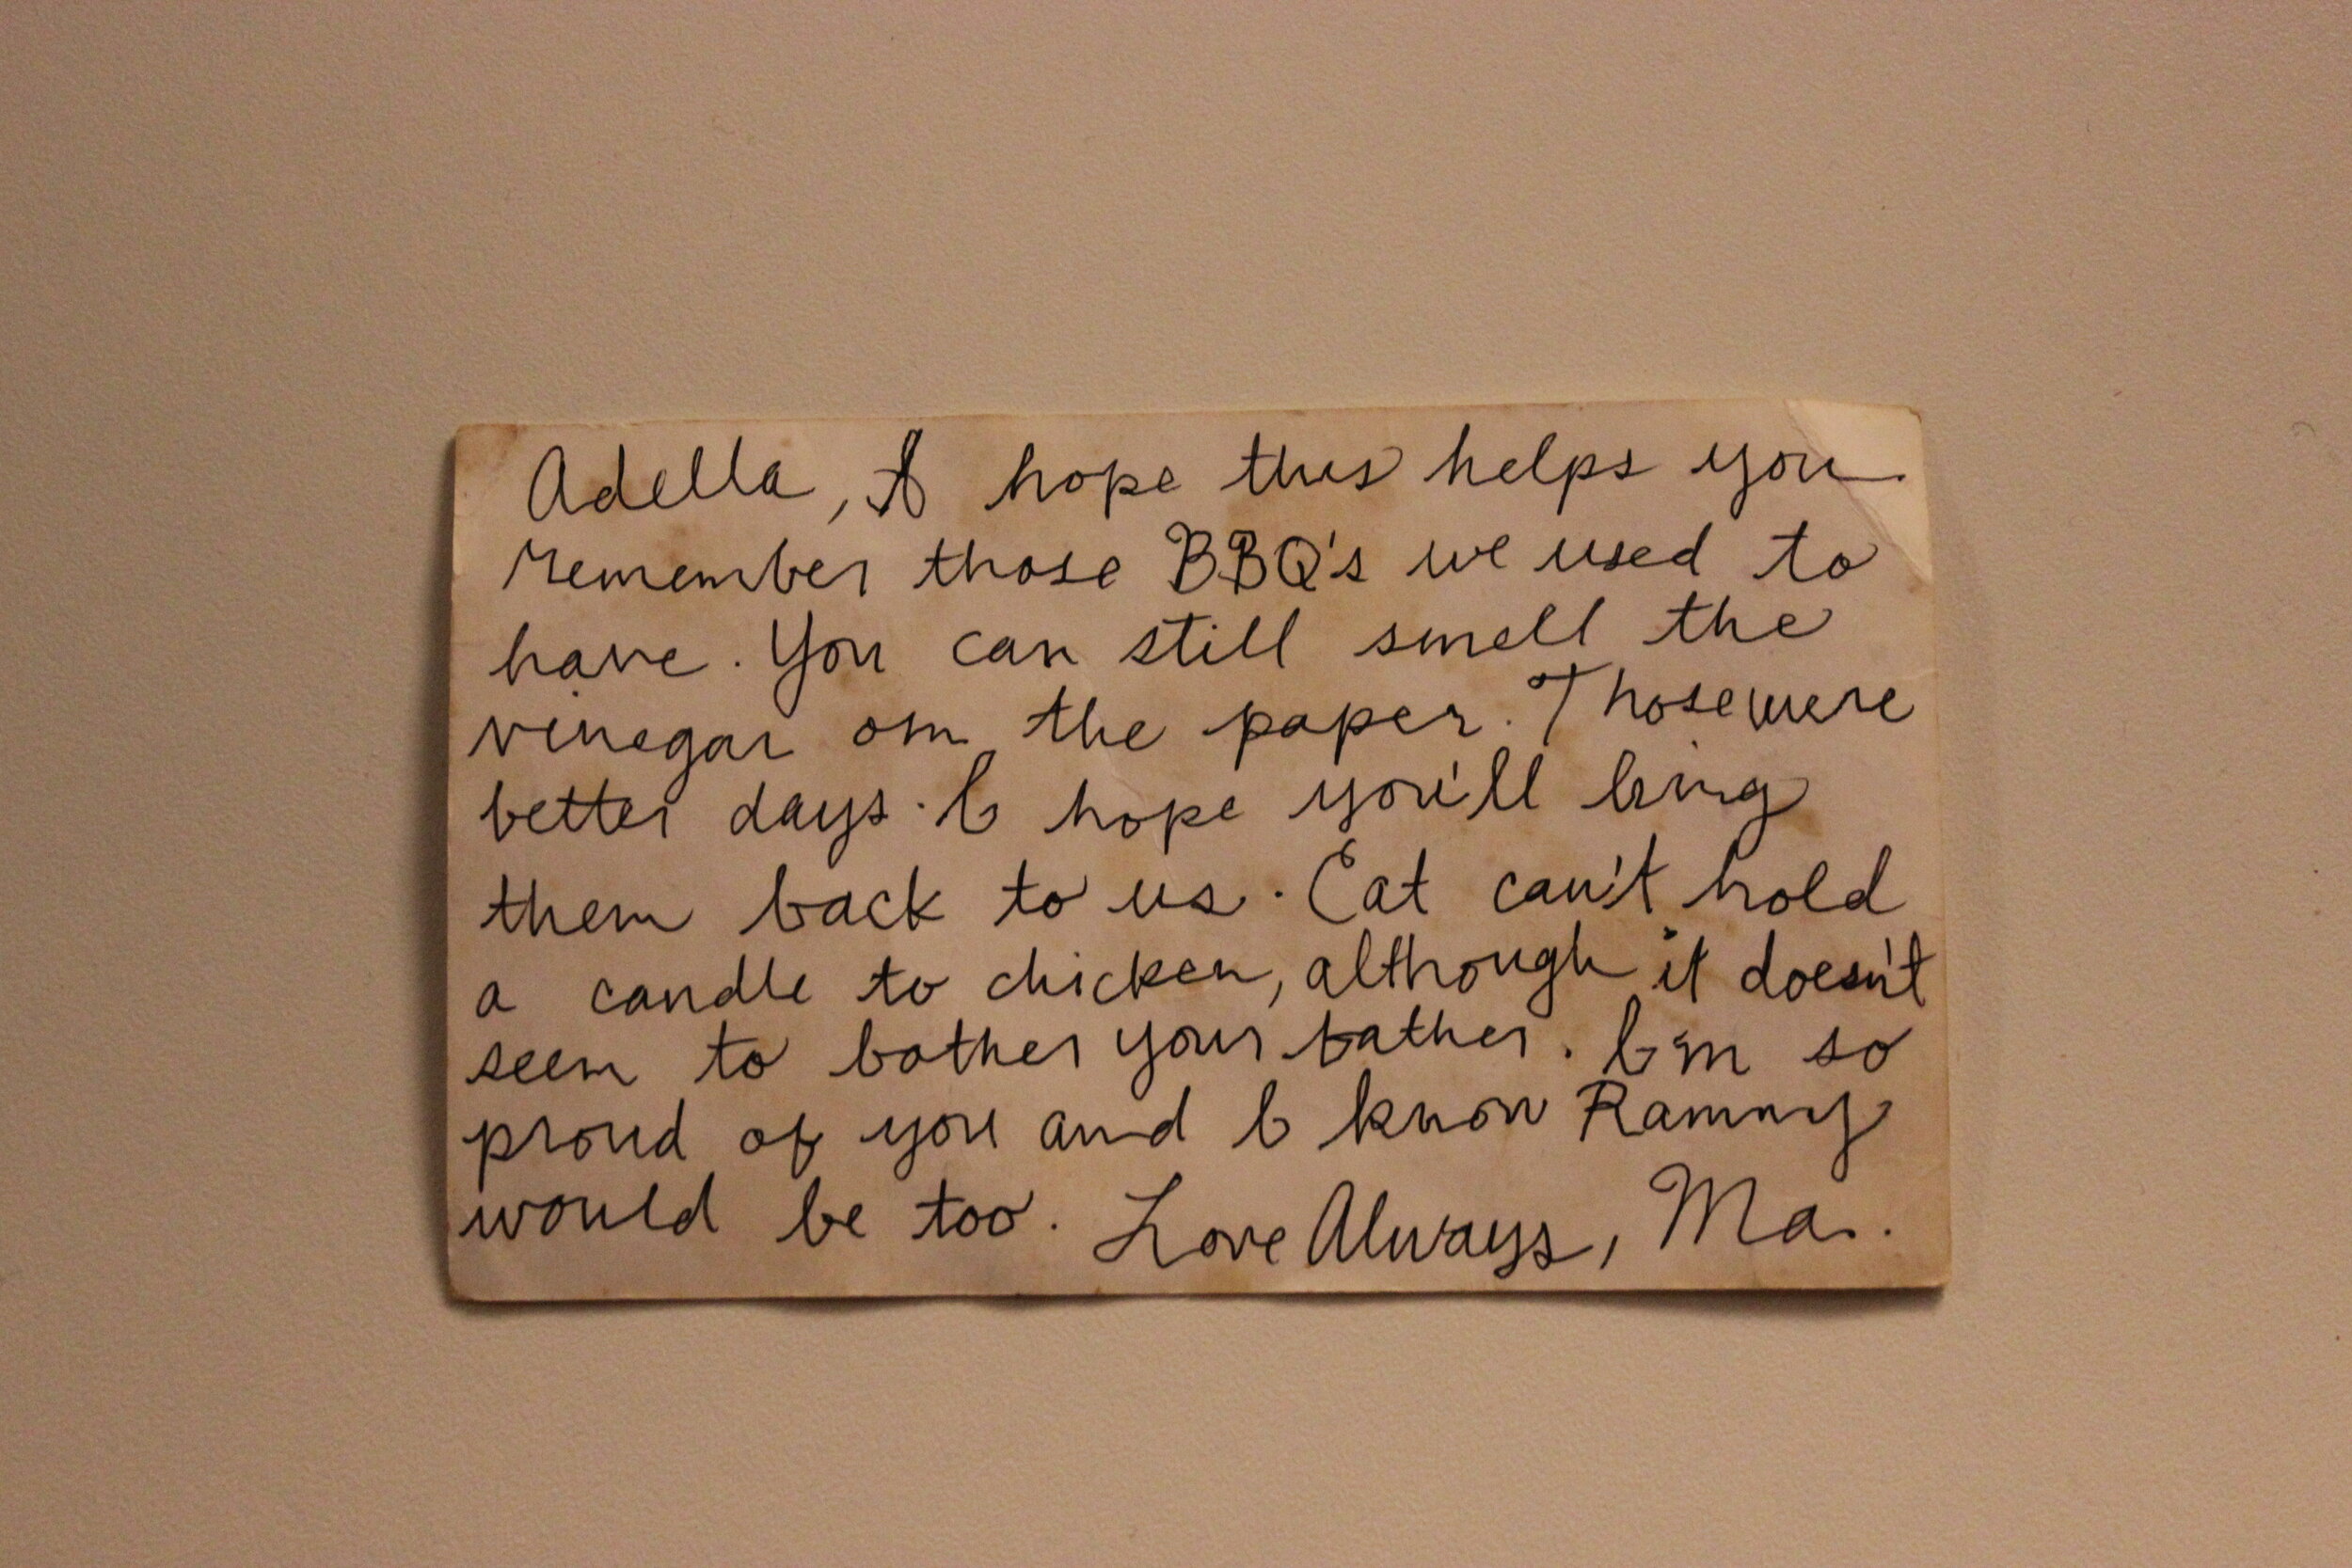 Adella, I hope this helps you
remember those BBQ's we used to
have. You can still smell the
vinegar on the paper. Those were
better days. I hope you'll bring
them back to us. Cat can't hold
a candle to chicken, although it doesn't
seem to bother your father. I'm so
proud of you and I know Rammy
would be too. Love Always, Ma.